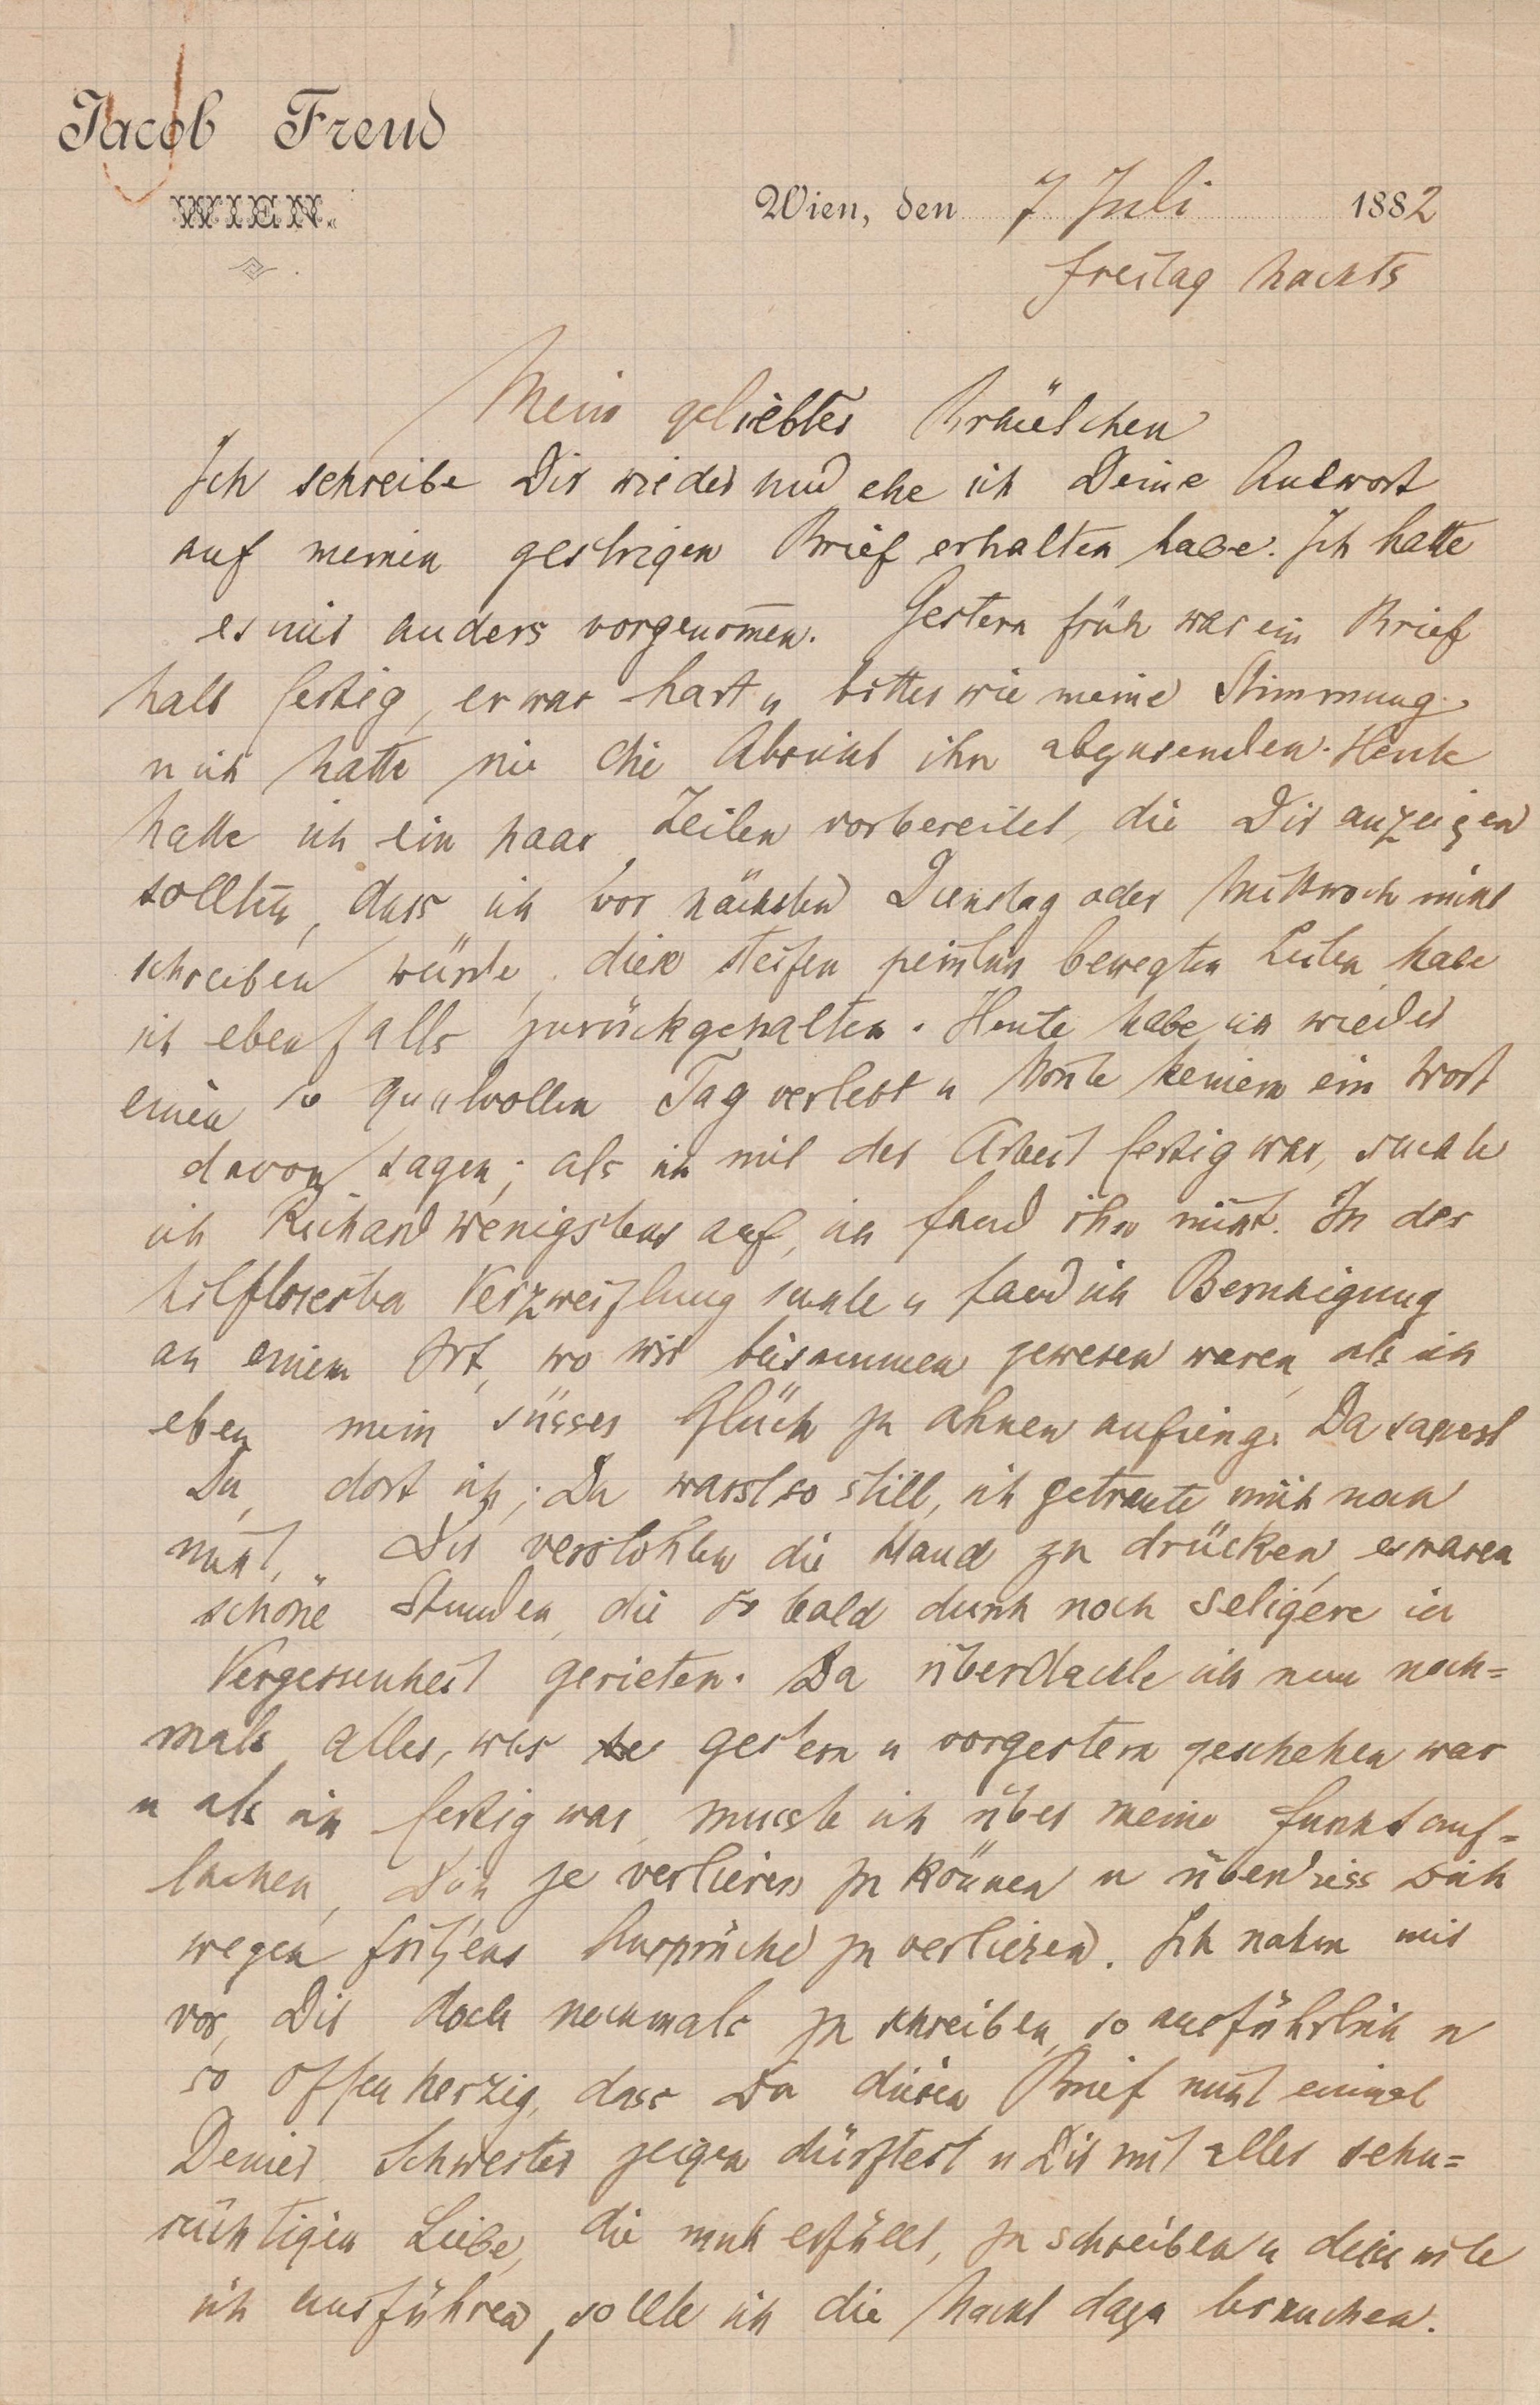 Jacob Freud
WIEN.
Wien, den 7 Juli 1882
Freitag nachts
Mein geliebtes Bräutchen
Ich schreibe Dir wieder und ehe ich Deine Antwort
auf meinen gestrigen Brief erhalten habe. Ich hatte
es mir anders vorgenom̅en. Gestern früh war ein Brief
halb fertig, er war hart u bitter wie meine Stimmung
u ich hatte nie die Absicht ihn abzusenden. Heute
hatte ich ein paar Zeilen vorbereitet, die Dir anzeigen
sollten, dass ich vor nächsten Dienstag oder Mittwoch nicht
schreiben würde, diese steifen peinlich bewegten Zeilen habe
ich ebenfalls zurückgehalten. Heute habe ich wieder
einen so qualvollen Tag verlebt u kon̅te keinem ein Wort
davon sagen; als ich mit der Arbeit fertig war, suchte
ich Richard wenigstens auf, ich fand ihn nicht. In der
hilflosesten Verzweiflung suchte u fand ich Beruhigung
an einem Ort, wo wir beisammen gewesen waren, als ich
eben mein süsses Glück zu ahnen anfieng. Da sassest
Du, dort ich; Du warst so still, ich getraute mich noch
nicht, Dir verstohlen die Hand zu drücken, es waren
schöne Stunden, die so bald durch noch seligere in
Vergessenheit gerieten. Da überdachte ich nun noch=
mals alles, was gestern u vorgestern geschehen war
u als ich fertig war, musste ich über meine Furcht auf=
lachen, Dich je verlieren zu können u Dich
wegen Fritzens Ansprüche zu verlieren. Ich nahm mir
vor, Dir doch nochmals zu schreiben, so ausführlich u
so offenherzig, dass Du diesen Brief nicht einmal
Deiner Schwester zeigen dürftest u Dir mit aller sehn=
süchtigen Liebe, die mich erfüllt, zu schreiben u
ich ausführen, sollte ich die Nacht dazu brauchen.